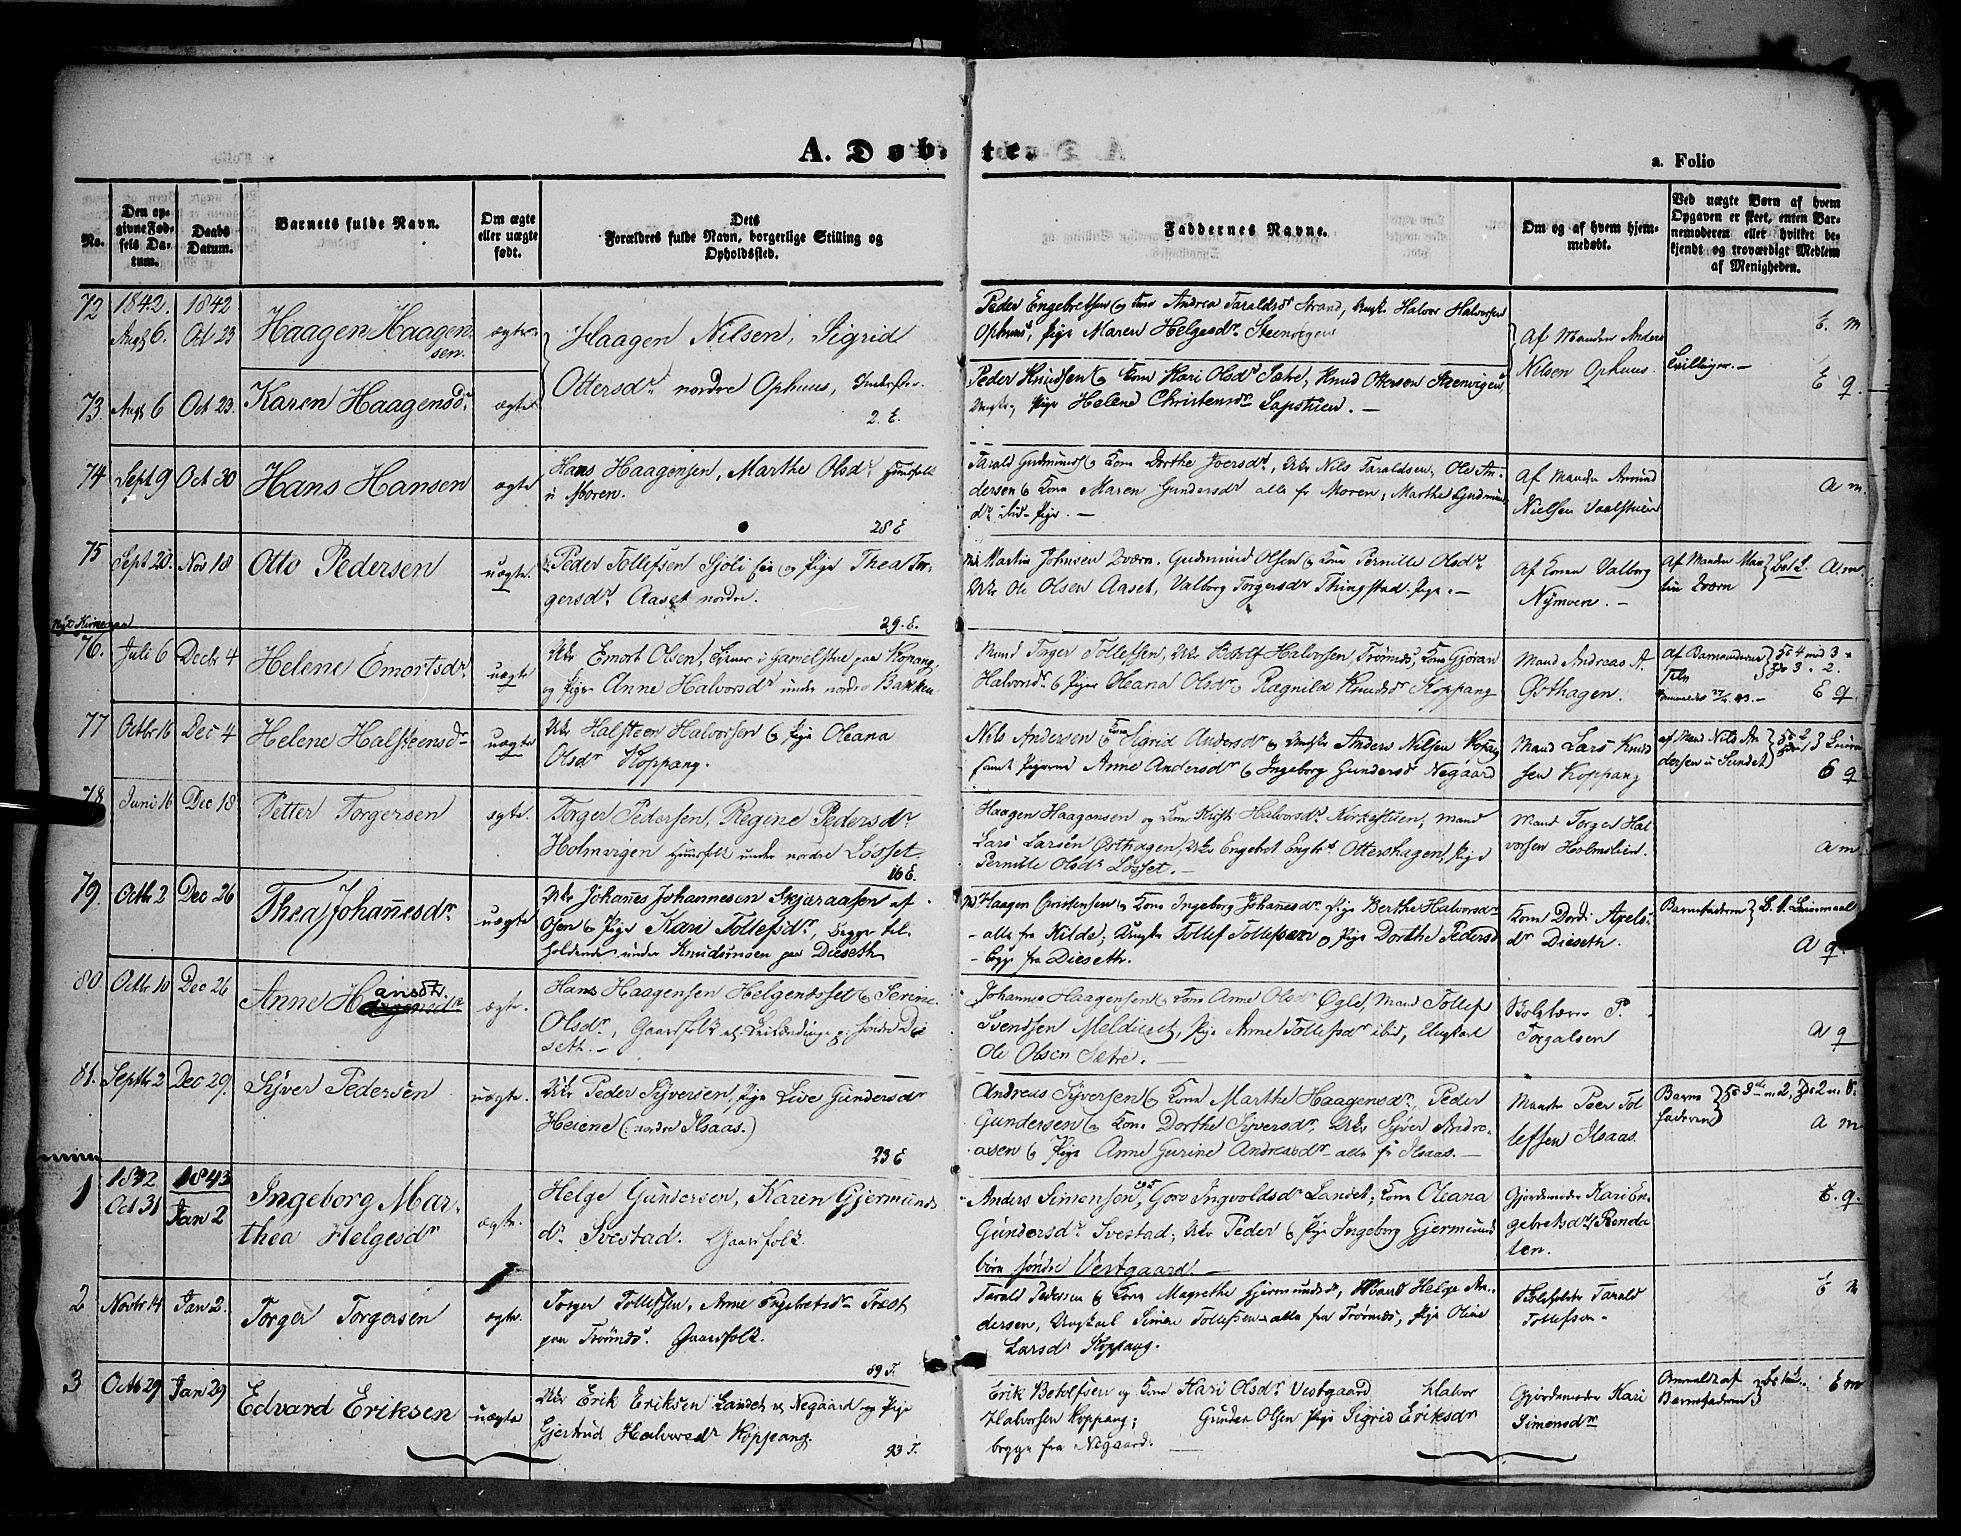 A. Døbte.
a. Folio
No.
Den opgivne Fødsels Datum.
Daabs Datum.
Barnets fulde Navn.
Om ægte eller uægte født.
Dets Forældres fulde Navn, borgerlige Stilling og Opholdssted.
Faddernes Navne.
Om og af hvem hjemmedøbt.
Ved uægte Børn af hvem Opgaven er skeet, enten Barnemoderen eller hvilket bekjendt og troværdigt Medlem af Menigheden.
72
1842.
Augt 6.
1842
Oct 23
Haagen Haagen-
sen.
ægte
Haagen Nilsen, Sigrid
Peder Engebretsen og Kone Andrea Taraldsdr Strand, Ungk. Halvor Halvorsen
Ophuus, Pige Maren Helgesdr Steenvigen
Af Manden Anders
Nilsen Ophuus.
Tvillinger.
E. m
73
Augt 6
Oct 23.
Karen Haagensdr
ægte
Ottersdr nordre Ophuus, Inderster.
2. E.
Peder Knudsen og Kone Kari Olsdr Sætre, Knud Ottersen Steenvigen,
Ungk., Pige Helene Christensdr Sapstuen.
E q.
74
Sept 9
Oct 30
Hans Hansen
ægte
Hans Haagensen, Marthe Olsdr Huusfolk
u Moren.
28 E
Tarald Gudmunds og Kone Dorthe Iversdr, Ukr Nils Taraldsen, Ole An-
dersen og Kone Maren Gundersdr alle fr Moren, Marthe Gudmunds
dr ibid Pige.
Af Manden Amund
Nielsen Vaalstuen
a m.
75
Sept 20.
Nov 18
Otto Pedersen
uægte.
Peder Tollefsen Sjöli og Pige Thea Tor-
gersdr Aaset nordre.
29. E.
Martin Johnsen Evorn. Gudmund Olsen og Kone Pernille Olsdr
Ukr Ole Olsen Aaset, Valborg Torgersdr Thingstad Pige.
Af Konen Valborg
Nymoen.
Af Manden Mar
tin Evorn
a. m
Nyt Kirkeaar
76.
Juli 6
Decbr 4
Helene Emortsdr
uægte
Ukr Emort Olsen, tjener i Gamelstue paa Kopang,
og Pige Anne Halvorsdr under nordre Bakken
Mand Torger Tollefsen, Ukr Botolf Halvorsen, Trønnes, Kone Gjøran
Halvorsdr og Piger Oleana Olsdr og Ragnild Knudsdr Koppang
Mand Andreas A.
Gothagen.
af Barnemoderen
E q
77
Octbr 16
Dec 4
Helene Halsteensdr
uægte
Ukr Halsteen Halvorsen og Pige Oleana
Olsdr Koppang.
Nils Andersen og Kone Sigrid Andersdr og Ungkr Anders Nilsen Kopang
samt Pigerne Anne Andersdr og Ingeborg Gundersdr Negaard
Mand Lars Knud
sen Koppang
af Mand Nils An
dersen i Sundet
E q
78
Juni 16
Dec 18
Petter Torgersen
ægte.
Torger Pedersen, Regine Pedersdr
Holmvigen Huusfolk under nordre Løsset
10 E.
Haagen Haagensen og Kone Kristi Halvorsdr Kirkestuen, Mand
Lars Larsen Østhagen, Ukr Engebret Engb. Ottershagen, Pige
Pernille Olsdr Løsset.
Mand Torger Hal
vorsen Holmslien.
a m.
79.
Octbr 2
Dec 26
Thea Johanesdr
uægte
Ukr Johanes Johannesen Skjæraasen af
Osen og Pige Kari Tollefsdr, begge til-
holdende under Knudsmoen paa Dieseth
Haagen Christensen og Kone Ingeborg Johanesdr, Pige Berthe Halvorsdr
- alle fra Kilde; Ungkr Tollef Tollefsen og Pige Dorthe Pedersd
- begge fr Dieseth.
Kone Dordi Axels-
dr Dieseth.
Barnefaderen
S. 1. Leiermaal
A q
80
Octbr 10
Dec 26
Anne Hansdtr.
ægte.
Hans Haagensen Helgendsset og Serine
Olsdr, Gaardfolk
seth.
Johannes Haagensen og Kone Anne Olsdr Øgle, Mand Tollef
Svendsen Meldiaset, Pige Anne Tollefsdr ibid, Ungkarl
Ole Olsen Sætre.
Skolelærer P.
Torgalsen
a q
81.
Septbr 2
Dec 29.
Syver Pedersen
uægte.
Ukr Peder Syversen, Pige Live Gundersdr
Heiene (nordre Ilsaas.)
23 E
Andreas Syversen og Kone Marthe Haagensdr, Peder
Gundersen og Kone Dorthe Syversdr, Ukr Syver Andre-
asen og Pige Anne Gurine Andreasdr alle fr Ilsaas.
Manden Peer Tol
lefsen Ilsaas.
Barne
faderen
a m
1
1842
Oct 31
1843
Jan 2
Ingeborg Mar-
thea Helgesdr
ægte.
Helge Gundersen, Karen Gjermunds
dr Svestad. Gaardfolk.
Anders Simensen, Goro Ingvoldsdr Landet; Kone Oleana
Gundersdr Svestad; Ukr Peder og Pige Ingeborg Gjermund
børn søndre Vestgaard.
Gjordemoder Kari En-
gebretsdr Renda
len.
E. q.
2
Novbr 14
Jan 2.
Torger Torgersen
ægte.
Torger Tollefsen, Anne Engebretsdr Trøst
paa Trönnes. Gaardfolk.
89 T.
Tarald Pedersen og Kone Magrethe Gjermundsdr, Mand Helge An-
dersen, Ungkarl Simen Tollefsen alle fra Trönnes, Pige Oline
Larsdr Koppang.
Skoleholder Tarald
Tollefsen.
E m
3
Octb 29
Jan 29
Edvard Eriksen
uægte
Ukr Erik Eriksen Landet v. Negaard og Pige
Gjertrud Halvorsdr Koppang.
93 T.
Erik Botolfsen og Kone Kari Olsdr Vestgaard Halvor
Halvorsen Koppang; Gunder Olsen Pige Sigrid Eriksdr
begge fra Negaard.
Gjordemoder Kari
Simensdr
Anmeldt af
Barnefaderen
E m